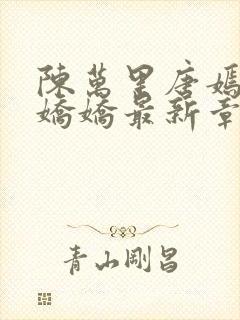 陳萬里唐嫣
嬌嬌最新章
青山剛昌